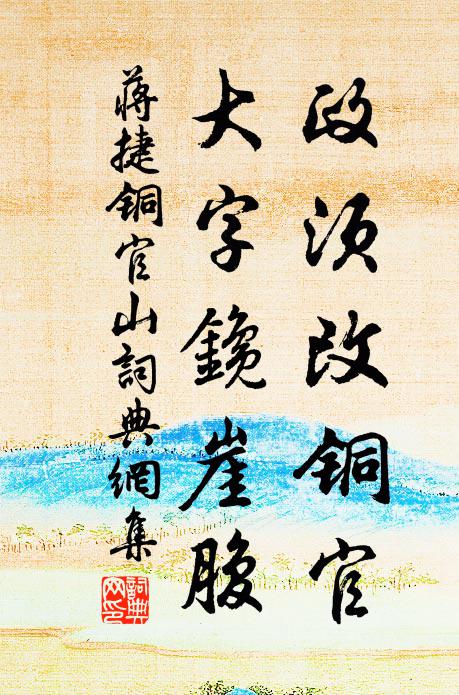 政須改銅官
大字鑱崖腹
蔣捷銅官山詞典網集
詞典網印